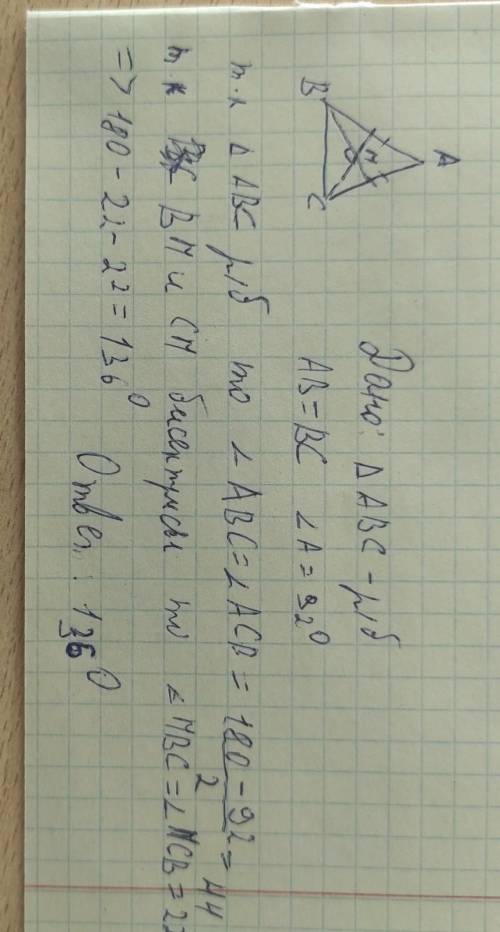 A
B
M
C
Дано: Δ ABC - р/б
AB = BC ∠A = 92°
т.к Δ ABC р/б то ∠ABC = ∠ACB = (180 - 92)/2 = 44
т.к BM и CM бисектрисы то ∠MBC = ∠MCB = 22
=> 180 - 22 - 22 = 136° Ответ: 136°